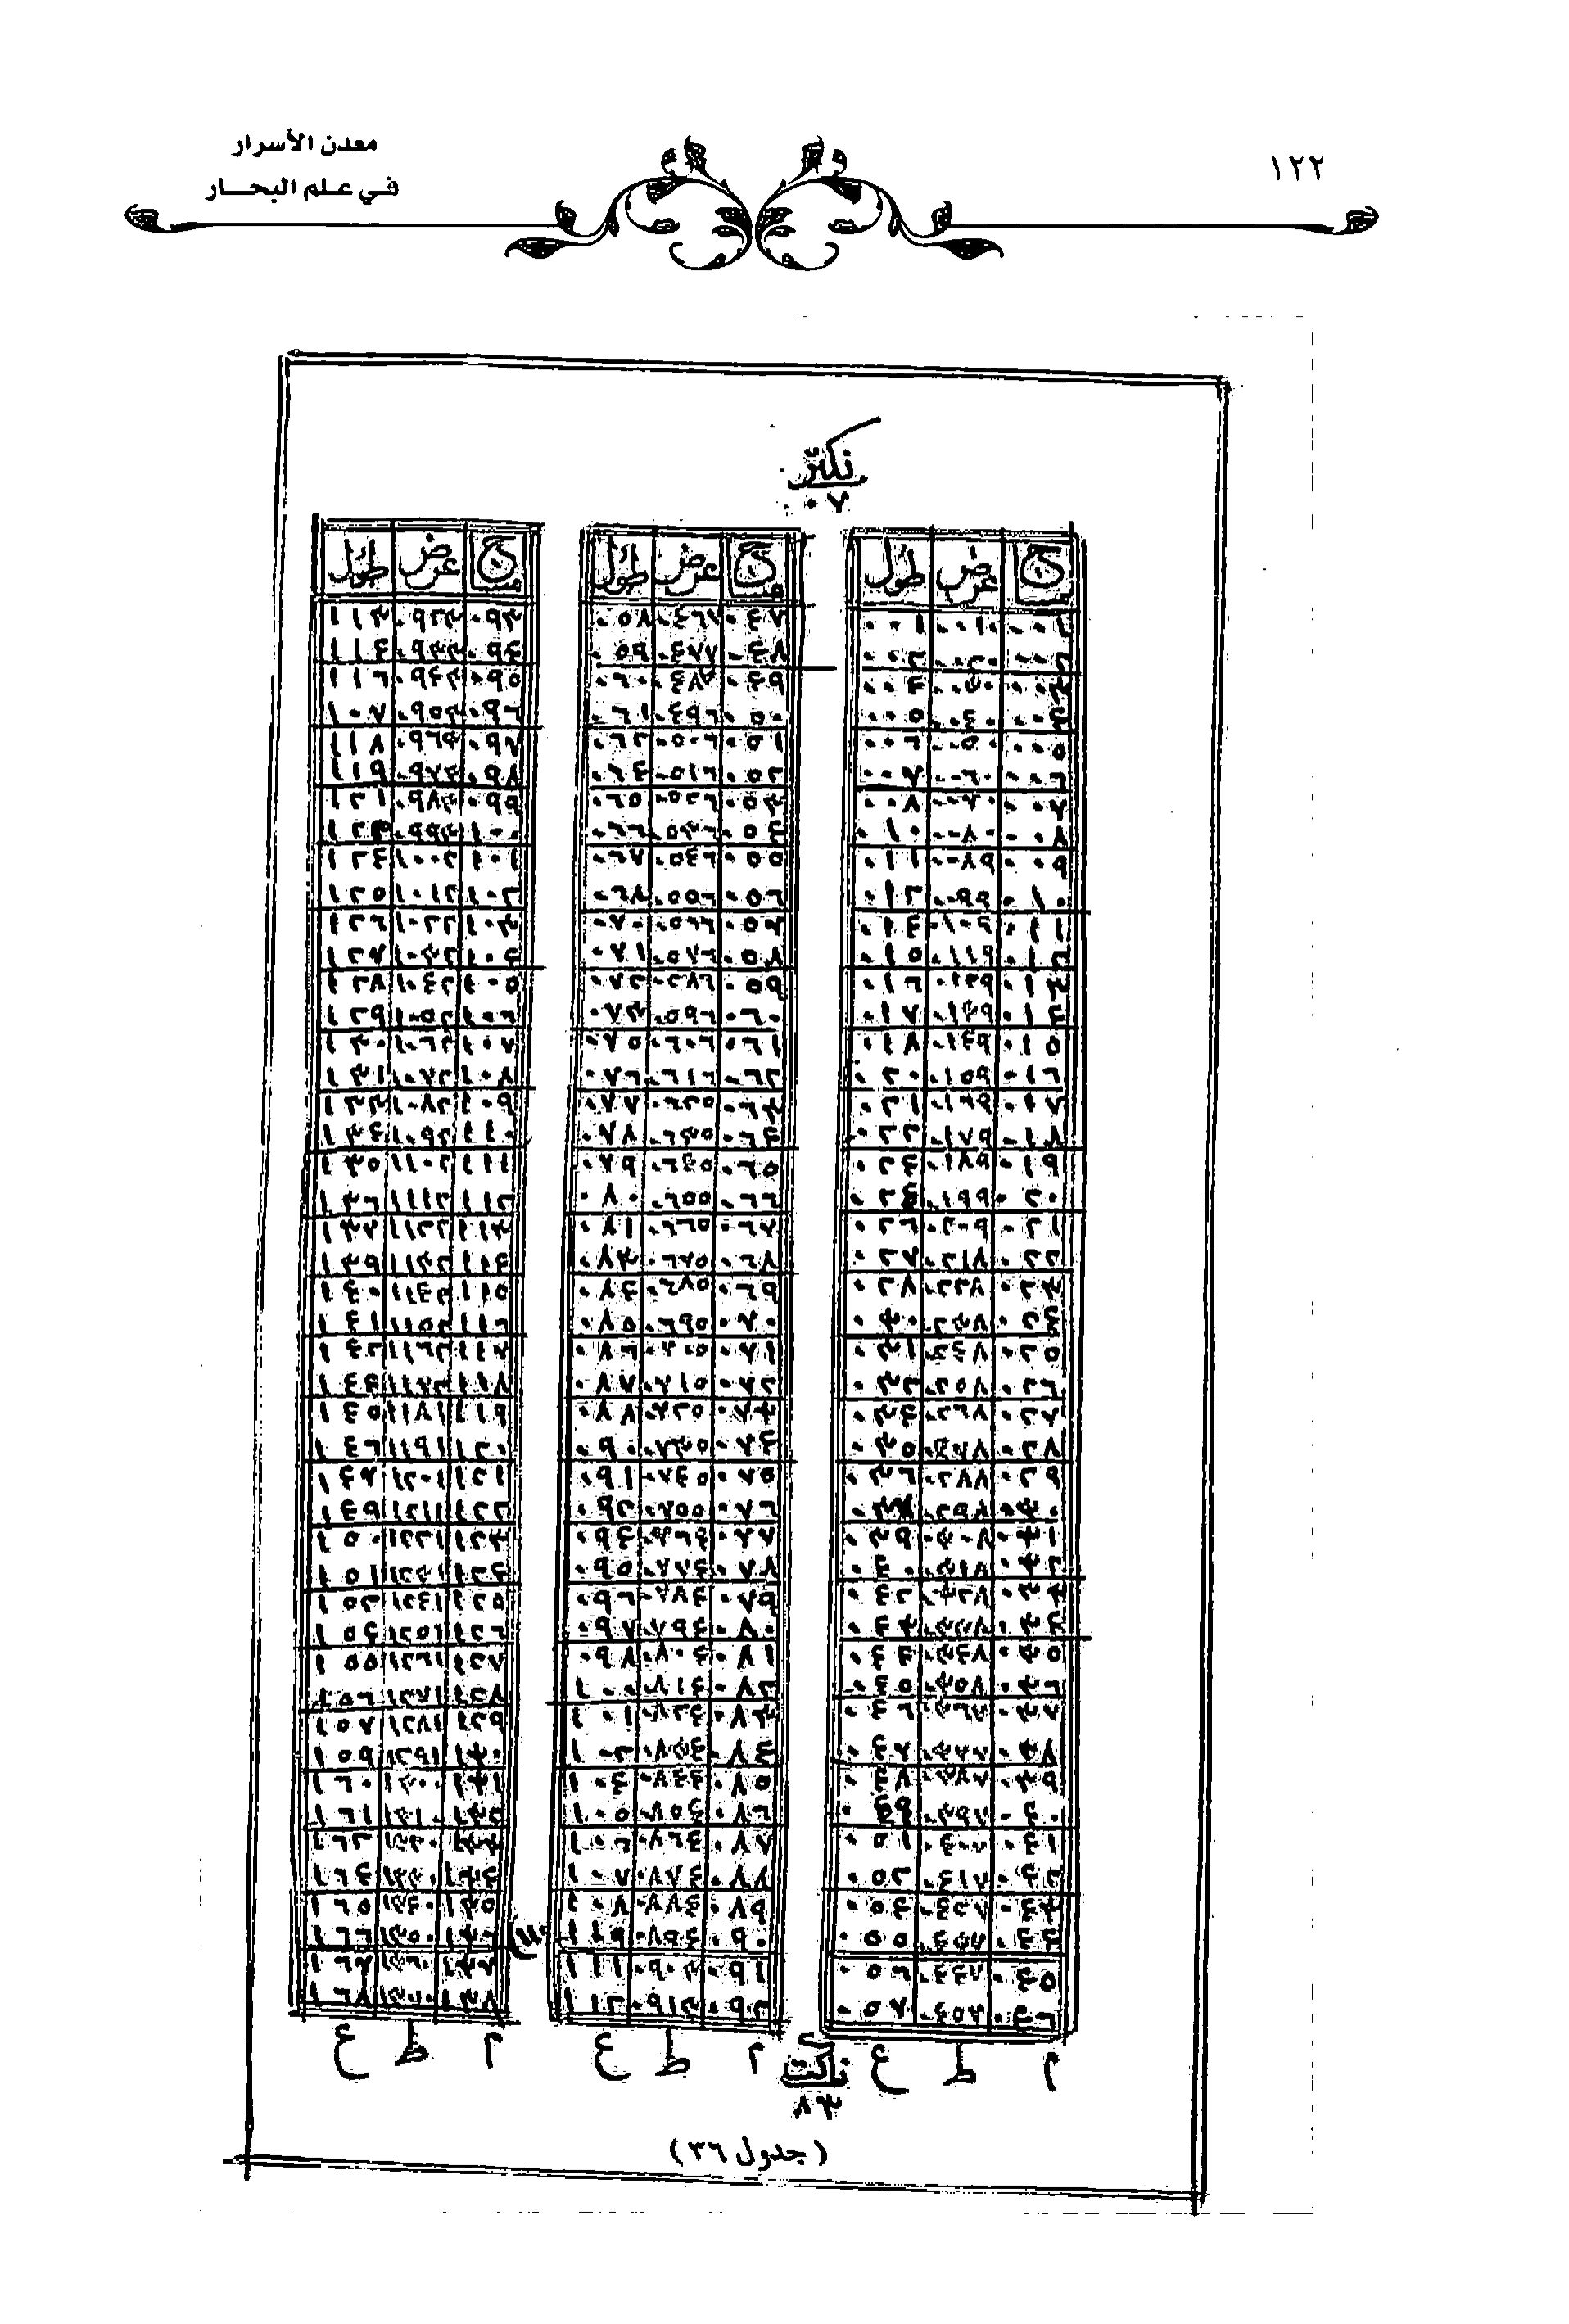 ١٢٢
معدن الأسرار
في علم البحار
نكتر
٠٧
مسج عرض طول
٠٠١ ٠٠١٠ ٠٠١
٠٠٢ ٠٠٢٠ ٠٠٢
٠٠٣ ٠٠٣٠ ٠٠٤
٠٠٤ ٠٠٤٠ ٠٠٥
٠٠٥ ٠٠٥٠ ٠٠٦
٠٠٦ ٠٠٦٠ ٠٠٧
٠٠٧ ٠٠٧٠ ٠٠٨
٠٠٨ ٠٠٨٠ ٠١٠
٠٠٩ ٠٠٨٩ ٠١١
٠١٠ ٠٠٩٩ ٠١٢
٠١١ ٠١٠٩ ٠١٤
٠١٢ ٠١١٩ ٠١٥
٠١٣ ٠١٢٩ ٠١٦
٠١٤ ٠١٣٩ ٠١٧
٠١٥ ٠١٤٩ ٠١٨
٠١٦ ٠١٥٩ ٠٢٠
٠١٧ ٠١٦٩ ٠٢١
٠١٨ ٠١٧٩ ٠٢٢
٠١٩ ٠١٨٩ ٠٢٤
٠٢٠ ٠١٩٩ ٠٢٤
٠٢١ ٠٢٠٩ ٠٢٦
٠٢٢ ٠٢١٨ ٠٢٧
٠٢٣ ٠٢٢٨ ٠٢٨
٠٢٤ ٠٢٣٨ ٠٣٠
٠٢٥ ٠٢٤٨ ٠٣١
٠٢٦ ٠٢٥٨ ٠٣٢
٠٢٧ ٠٢٦٨ ٠٣٤
٠٢٨ ٠٢٧٨ ٠٣٥
٠٢٩ ٠٢٨٨ ٠٣٦
٠٣٠ ٠٢٩٨ ٠٣٧
٠٣١ ٠٣٠٨ ٠٣٩
٠٣٢ ٠٣١٨ ٠٤٠
٠٣٣ ٠٣٢٨ ٠٤٢
٠٣٤ ٠٣٣٨ ٠٤٣
٠٣٥ ٠٣٤٨ ٠٤٤
٠٣٦ ٠٣٥٨ ٠٤٥
٠٣٧ ٠٣٦٧ ٠٤٦
٠٣٨ ٠٣٧٧ ٠٤٧
٠٣٩ ٠٣٨٧ ٠٤٨
٠٤٠ ٠٣٩٧ ٠٤٩
٠٤١ ٠٤٠٧ ٠٥١
٠٤٢ ٠٤١٧ ٠٥٢
٠٤٣ ٠٤٢٨ ٠٥٤
٠٤٤ ٠٤٣٧ ٠٥٥
٠٤٥ ٠٤٤٧ ٠٥٦
٠٤٦ ٠٤٥٧ ٠٥٧
م ط ع
مسج عرض طول
٠٤٧ ٠٤٦٧ ٠٥٨
٠٤٨ ٠٤٧٧ ٠٥٩
٠٤٩ ٠٤٨٧ ٠٦٠
٠٥٠ ٠٤٩٦ ٠٦١
٠٥١ ٠٥٠٦ ٠٦٢
٠٥٢ ٠٥١٦ ٠٦٤
٠٥٣ ٠٥٢٦ ٠٦٥
٠٥٤ ٠٥٣٦ ٠٦٦
٠٥٥ ٠٥٤٦ ٠٦٧
٠٥٦ ٠٥٥٦ ٠٦٨
٠٥٧ ٠٥٦٦ ٠٧٠
٠٥٨ ٠٥٧٦ ٠٧١
٠٥٩ ٠٥٨٦ ٠٧٢
٠٦٠ ٠٥٩٦ ٠٧٣
٠٦١ ٠٦٠٦ ٠٧٥
٠٦٢ ٠٦١٦ ٠٧٦
٠٦٣ ٠٦٢٥ ٠٧٧
٠٦٤ ٠٦٣٥ ٠٧٨
٠٦٥ ٠٦٤٥ ٠٧٩
٠٦٦ ٠٦٥٥ ٠٨٠
٠٦٧ ٠٦٦٥ ٠٨١
٠٦٨ ٠٦٧٥ ٠٨٣
٠٦٩ ٠٦٨٥ ٠٨٤
٠٧٠ ٠٦٩٥ ٠٨٥
٠٧١ ٠٧٠٥ ٠٨٦
٠٧٢ ٠٧١٥ ٠٨٧
٠٧٣ ٠٧٢٥ ٠٨٨
٠٧٤ ٠٧٣٥ ٠٩٠
٠٧٥ ٠٧٤٥ ٠٩١
٠٧٦ ٠٧٥٥ ٠٩٢
٠٧٧ ٠٧٦٤ ٠٩٤
٠٧٨ ٠٧٧٤ ٠٩٥
٠٧٩ ٠٧٨٤ ٠٩٦
٠٨٠ ٠٧٩٤ ٠٩٧
٠٨١ ٠٨٠٤ ٠٩٨
٠٨٢ ٠٨١٤ ١٠٠
٠٨٣ ٠٨٢٤ ١٠١
٠٨٤ ٠٨٣٤ ١٠٢
٠٨٥ ٠٨٤٤ ١٠٤
٠٨٦ ٠٨٥٤ ١٠٥
٠٨٧ ٠٨٦٤ ١٠٦
٠٨٨ ٠٨٧٤ ١٠٧
٠٨٩ ٠٨٨٤ ١٠٨
٠٩٠ ٠٨٩٤ (١١٠
٠٩١ ٠٩٠٣ ١١١
٠٩٢ ٠٩١٣ ١١٢
م ط ع
مسج عرض طول
٠٩٣ ٠٩٢٣ ١١٣
٠٩٤ ٠٩٣٣ ١١٤
٠٩٥ ٠٩٤٣ ١١٦
٠٩٦ ٠٩٥٣ ١٠٧
٠٩٧ ٠٩٦٣ ١١٨
٠٩٨ ٠٩٧٣ ١١٩
٠٩٩ ٠٩٨٣ ١٢١
١٠٠ ٠٩٩٣ ١٢٣
١٠١ ١٠٠٢ ١٢٤
١٠٢ ١٠١٢ ١٢٥
١٠٣ ١٠٢٢ ١٢٦
١٠٤ ١٠٣٢ ١٢٧
١٠٥ ١٠٤٢ ١٢٨
١٠٦ ١٠٥٢ ١٢٩
١٠٧ ١٠٦٢ ١٣٠
١٠٨ ١٠٧٢ ١٣١
١٠٩ ١٠٨٢ ١٣٣
١١٠ ١٠٩٢ ١٣٤
١١١ ١١٠٢ ١٣٥
١١٢ ١١١٢ ١٣٦
١١٣ ١١٢٢ ١٣٧
١١٤ ١١٣٢ ١٣٩
١١٥ ١١٤٢ ١٤٠
١١٦ ١١٥٢ ١٤١
١١٧ ١١٦٢ ١٤٢
١١٨ ١١٧٢ ١٤٤
١١٩ ١١٨١ ١٤٥
١٢٠ ١١٩١ ١٤٦
١٢١ ١٢٠١ ١٤٧
١٢٢ ١٢١١ ١٤٩
١٢٣ ١٢٢١ ١٥٠
١٢٤ ١٢٣١ ١٥١
١٢٥ ١٢٤١ ١٥٢
١٢٦ ١٢٥١ ١٥٤
١٢٧ ١٢٦١ ١٥٥
١٢٨ ١٢٧١ ١٥٦
١٢٩ ١٢٨١ ١٥٧
١٣٠ ١٢٩١ ١٥٩
١٣١ ١٣٠٠ ١٦٠
١٣٢ ١٣١٠ ١٦١
١٣٣ ١٣٢٠ ١٦٢
١٣٤ ١٣٣٠ ١٦٤
١٣٥ ١٣٤٠ ١٦٥
١٣٦ ١٣٥٠ ١٦٦
١٣٧ ١٣٦٠ ١٦٧
١٣٨ ١٣٧٠ ١٦٨
م ط ع
نكت
٨٣
(جدول ٣٦)